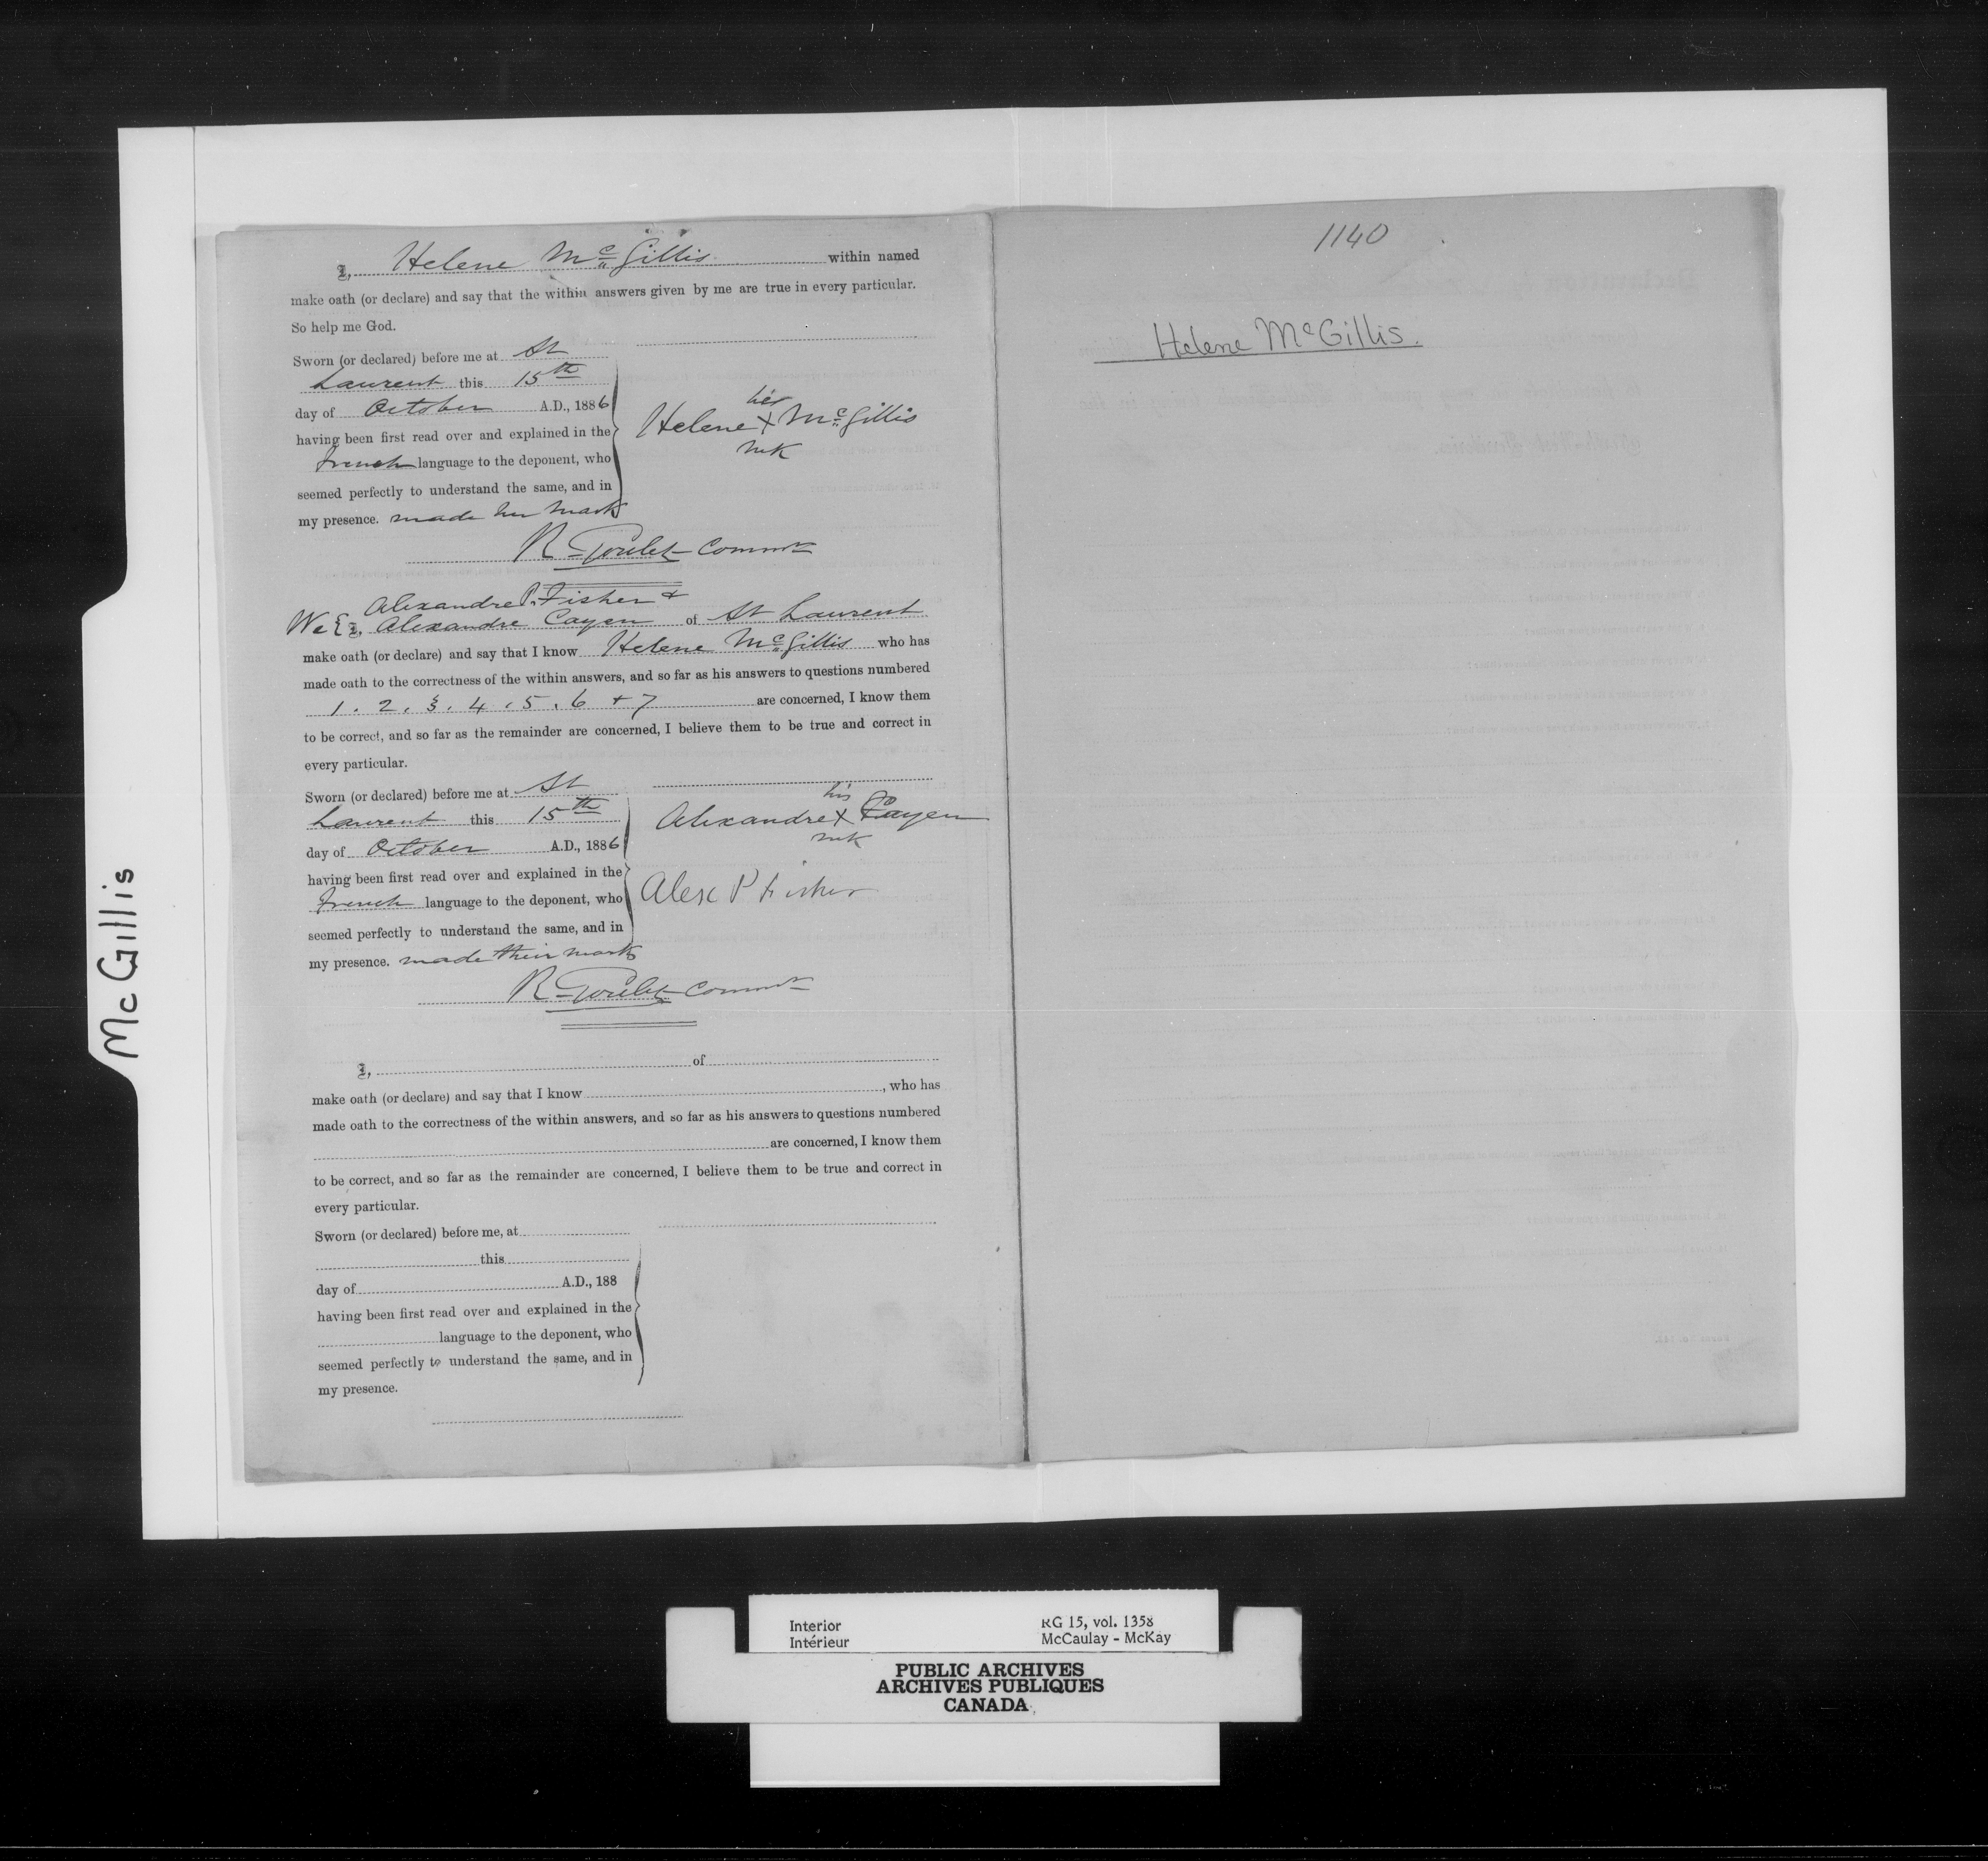 McGillis
I, Helene McGillis within named
make oath (or declare) and say that the within answers given by me are true in every particular.
So help me God.
Sworn (or declared) before me at St
Laurent this 15th
day of October A.D., 1886
having been first read over and explained in the
french language to the deponent, who
seemed perfectly to understand the same, and in
my presence. made her mark
her
Helene X McGillis
mk
R Goulet Commr
Alexandre P. Fisher &
We { I, Alexandre Cayen of St Laurent
make oath (or declare) and say that I know Helene McGillis who has
made oath to the correctness of the within answers, and so far as his answers to questions numbered
1. 2. 3. 4. 5. 6 + 7 are concerned, I know them
to be correct, and so far as the remainder are concerned, I believe them to be true and correct in
every particular.
Sworn (or declared) before me at St
Laurent this 15th
day of October A.D., 1886
having been first read over and explained in the
french language to the deponent, who
seemed perfectly to understand the same, and in
my presence. made their mark
his
Alexandre X Cayen
mk
Alex P Fisher
R Goulet Commr
I, of
make oath (or declare) and say that I know , who has
made oath to the correctness of the within answers, and so far as his answers to questions numbered
are concerned, I know them
to be correct, and so far as the remainder are concerned, I believe them to be true and correct in
every particular.
Sworn (or declared) before me, at
this
day of A.D., 188
having been first read over and explained in the
language to the deponent, who
seemed perfectly to understand the same, and in
my presence.
1140
Helene McGillis.
Interior RG 15, vol. 1358
Intérieur McCaulay - McKay
PUBLIC ARCHIVES
ARCHIVES PUBLIQUES
CANADA